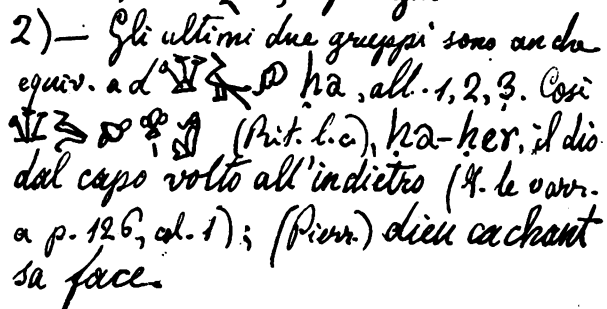 2)— Gli ultimi due gruppi sono anche
equiv. ad ḥa, all. 1, 2, 3. Così
(Rit. l.c.), ḥa-ḥer, il dio
dal capo volto all'indietro (V. le varr.
a p. 126, col. 1); (Pierr.) dieu cachant
sa face.